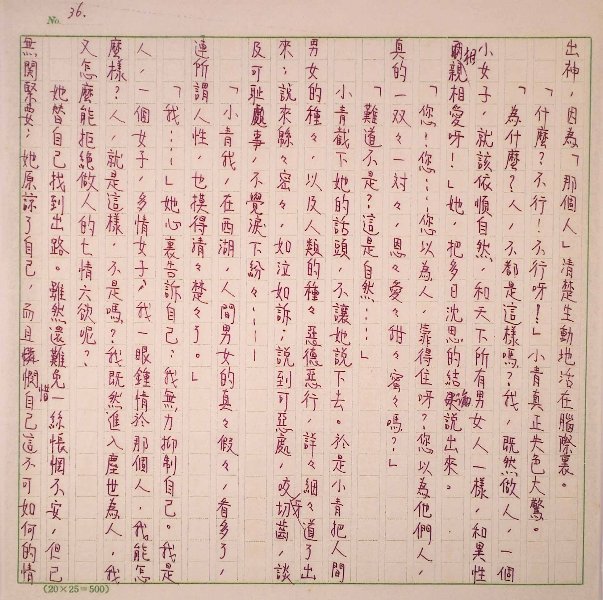 No. 36.
出神，因為「那個人」清楚生動地活在腦際裏。
「什麼？不行！不行呀！」小青真正失色大驚。
「為什麼？人，不都是這樣嗎？我，既然做人，一個
小女子，就該依順自然，和天下所有男女人一樣，和異性
相親相愛呀！」她，把多日沈思的結論說出來。
「您！您⋯⋯您以為人，靠得住呀？您以為他們人，
真的一双々一对々，恩々愛々甜々蜜々嗎？」
「難道不是？這是自然⋯⋯」
小青截下她的話頭，不讓她說下去。於是小青把人間
男女的種々，以及人類的種々惡德惡行，詳々細々道了出
來：說來綿々密々，如泣如訴：說到可惡處，咬牙切齒，談
及可耻處事，不覺淚下紛々⋯⋯
「小青我，在西湖，人間男女的真々假々，看多了，
連所謂人性，也摸得清々楚々了。」
「我⋯⋯」她心裏告訴自己：我無力抑制自己。我是
人，一個女子，多情女子，我一眼鍾情於那個人，我能怎
麼樣？人，就是這樣，不是嗎？我既然進入塵世為人，我
又怎麼能拒絕做人的七情六欲呢？
她替自己找到出路。雖然還難免一絲悵惘不安，但已
無關緊要；她原諒了自己，而且憐惜自己這不可如何的情
(20×25=500)